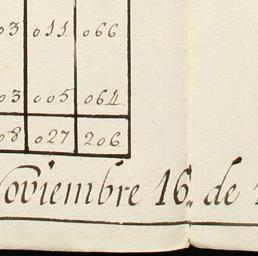 03 011 066
03 005 064
08 027 206
Noviembre 16. de